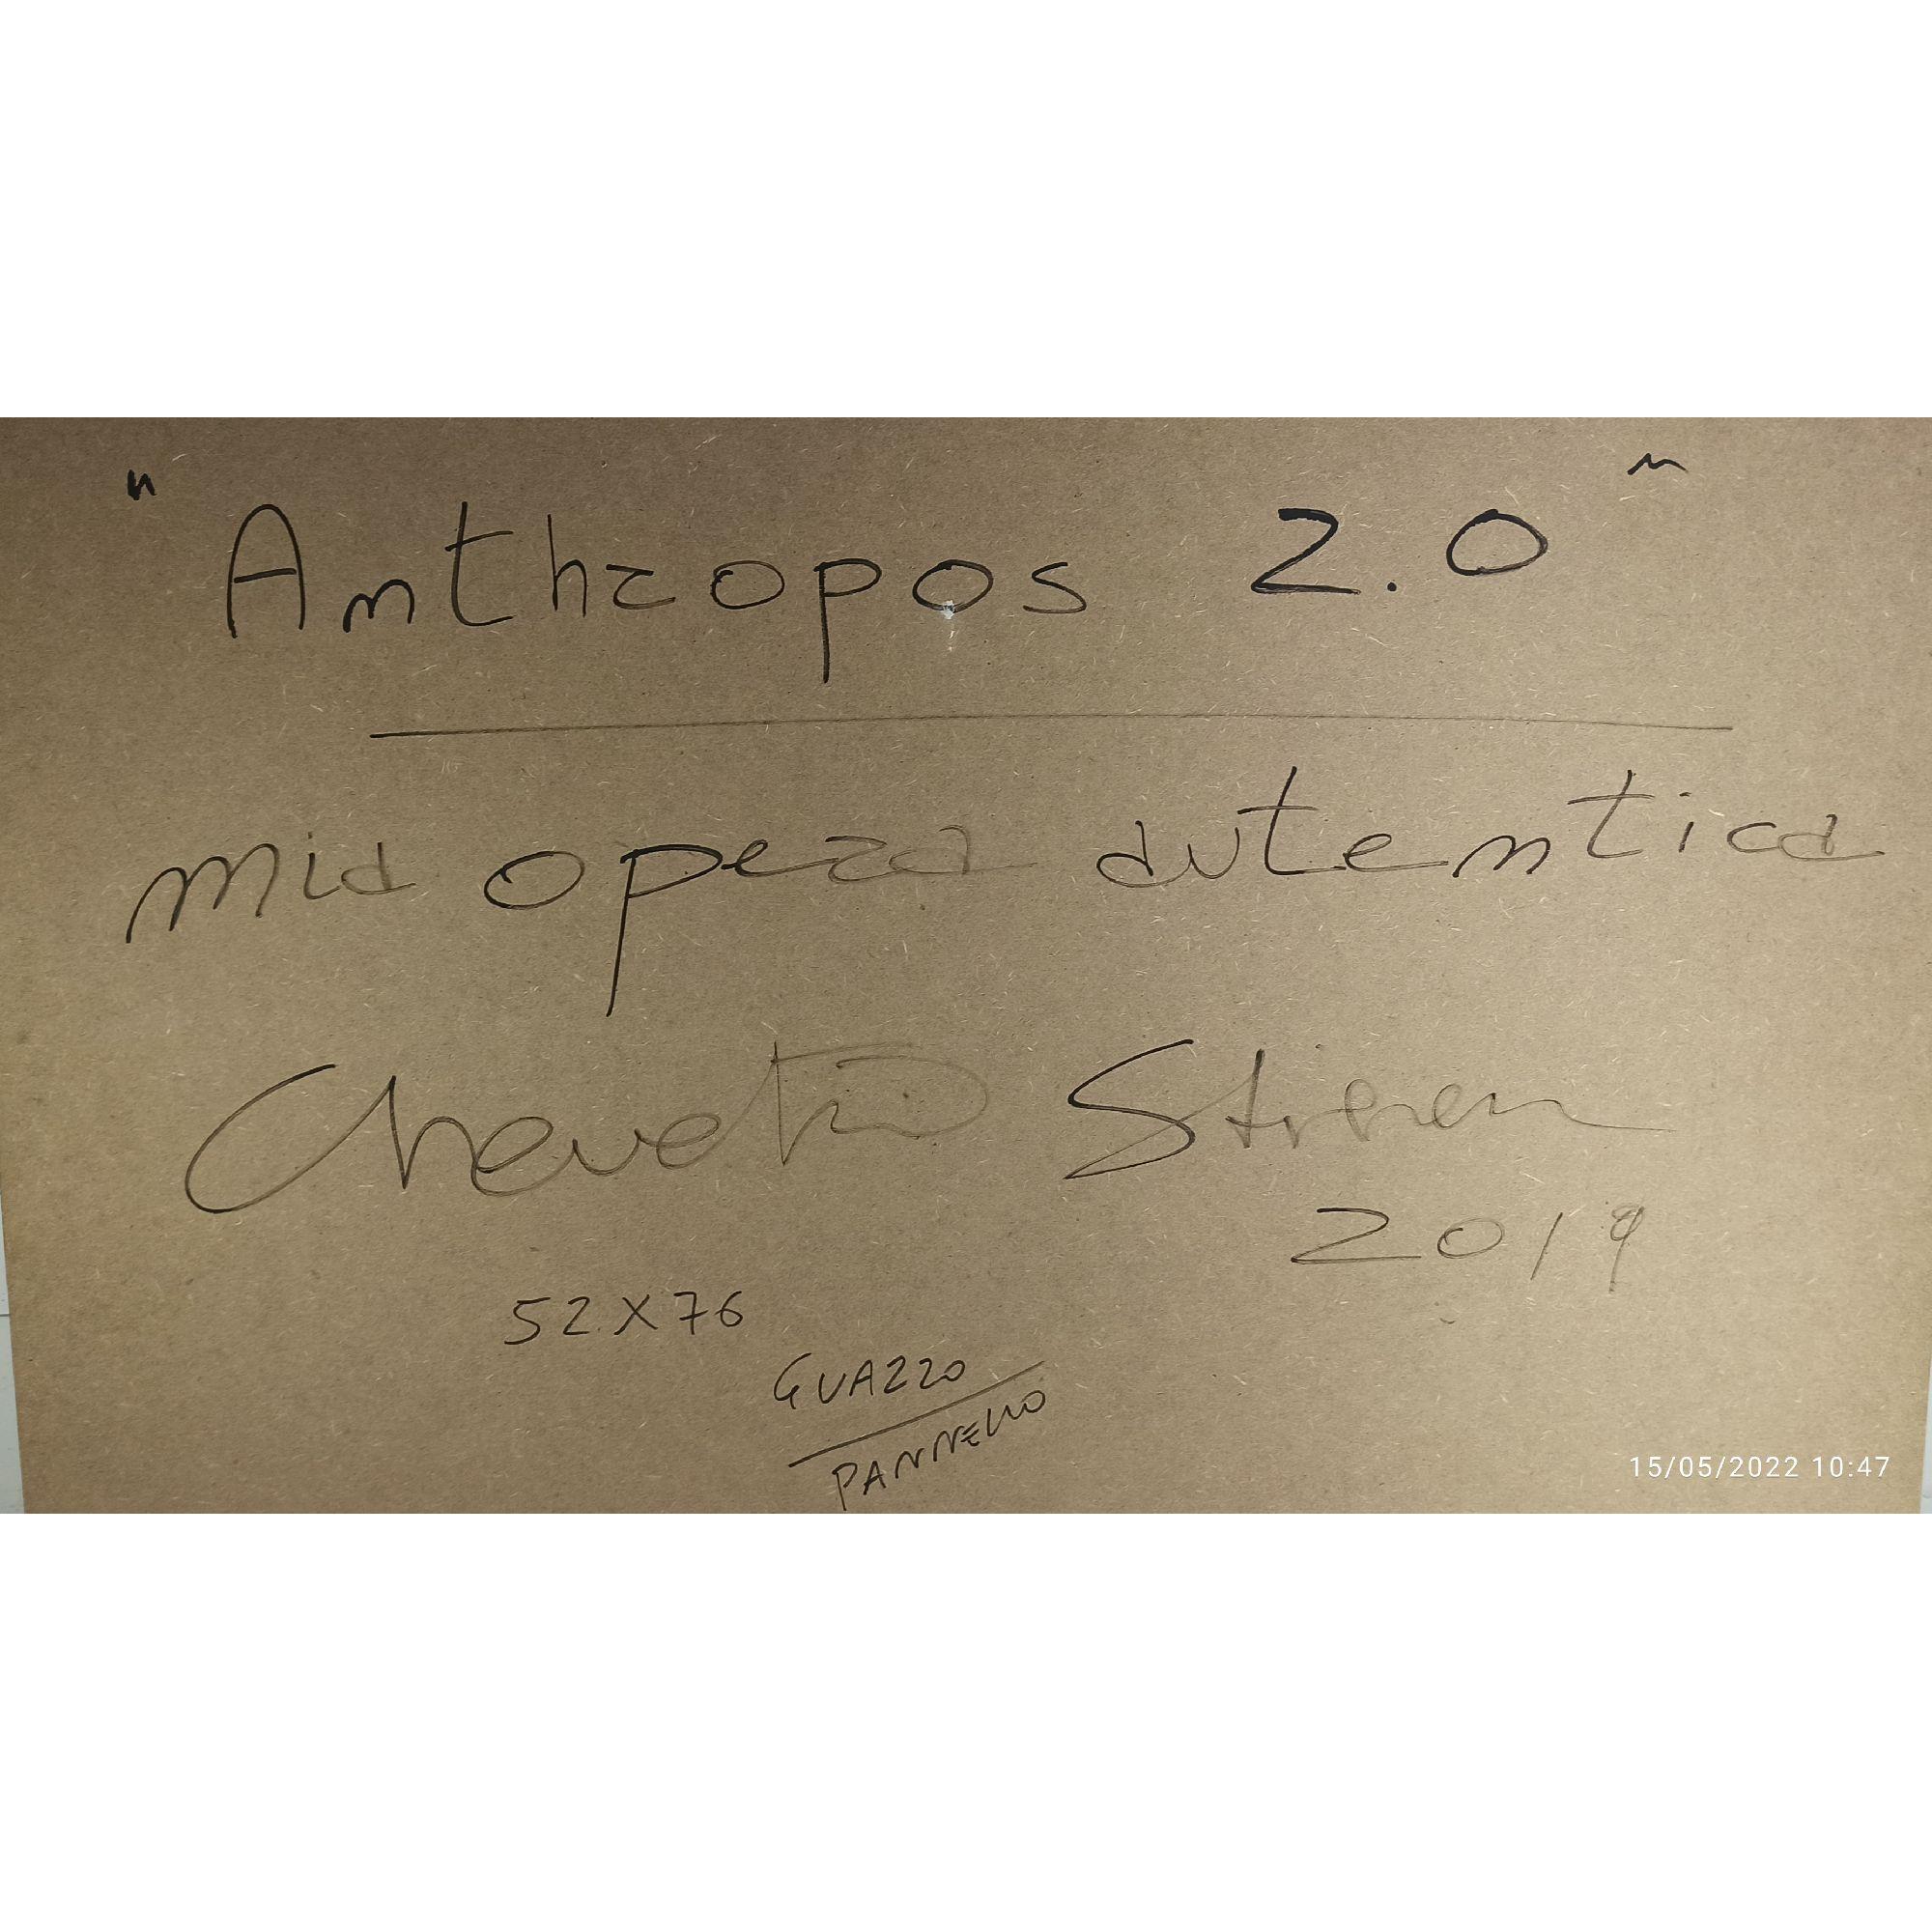 "Anthropos 2.0"
mia opera autentica
2019
52x76
GUAZZO
PANNELLO
15/05/2022 10:47